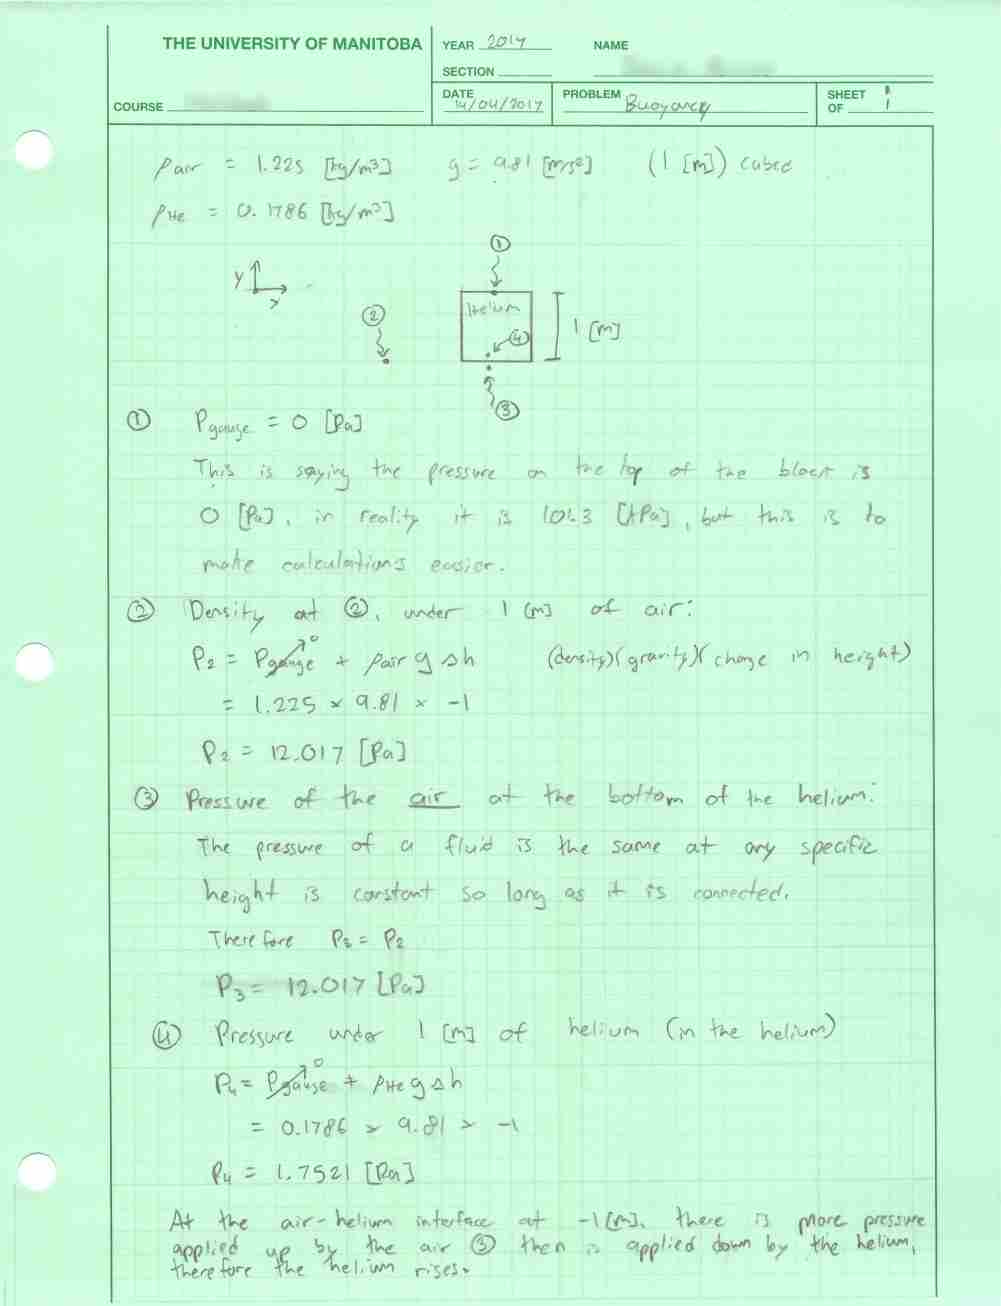 THE UNIVERSITY OF MANITOBA
YEAR 2014
NAME
SECTION
COURSE
DATE 14/04/2014
PROBLEM Buoyancy
SHEET 1
OF 1
ρair = 1.225 [kg/m³] g = 9.81 [m/s²] (1 [m]) cubed
ρHe = 0.1786 [kg/m³]
①
y
x
②
Helium
④
1 [m]
③
① Pgauge = 0 [Pa]
This is saying the pressure on the top of the block is
0 [Pa], in reality it is 101.3 [kPa], but this is to
make calculations easier.
② Density at ②, under 1 [m] of air:
P2 = Pgauge 0 + ρair g Δh (density)(gravity)(change in height)
= 1.225 × 9.81 × -1
P2 = 12.017 [Pa]
③ Pressure of the air at the bottom of the helium:
The pressure of a fluid is the same at any specific
height is constant so long as it is connected.
Therefore P3 = P2
P3 = 12.017 [Pa]
④ Pressure under 1 [m] of helium (in the helium)
P4 = Pgauge 0 + ρHe g Δh
= 0.1786 × 9.81 × -1
P4 = 1.7521 [Pa]
At the air-helium interface at -1[m], there is more pressure
applied up by the air ③ then is applied down by the helium,
therefore the helium rises.